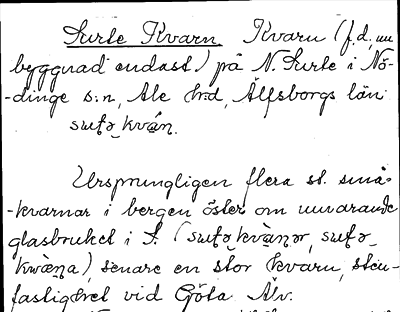 Surte Kvarn Kvarn (f.d., nu
byggnad endast) på N. Surte i Nö-
-dinge s:n, Ale h:d, Älfsborgs län
Ursprungligen flera st. små-
-kvarnar i bergen öster om nuvarande
glasbruket i S.
senare en stor kvarn, sten-
fastighet vid Göta Älv.